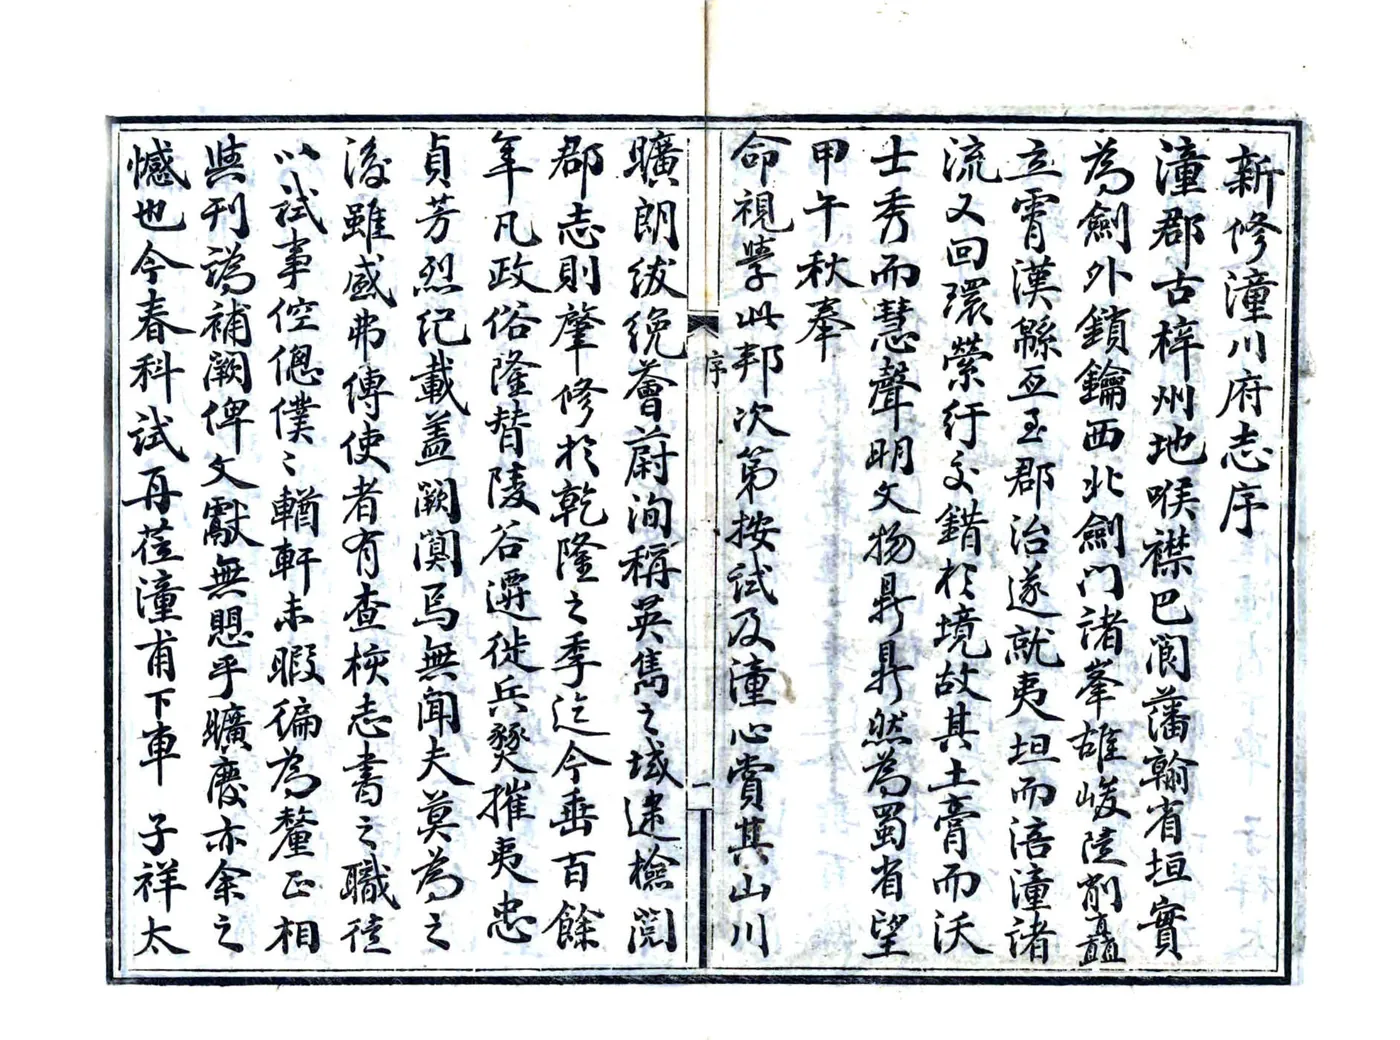 新修潼川府志序
潼郡古梓州地喉襟巴閬藩翰省垣實
為劍外鎖鑰西北劍门諸峯雄峻陡削矗
立霄漢緜亙至郡治遂就夷坦而涪潼諸
流又回環縈紆交錯於境故其土膏而沃
士秀而慧聲明文物鼎鼎然為蜀省望
甲午秋奉
命視學此邦次第按試及潼心賞其山川
序
一
曠朗紱絻薈蔚洵稱英雋之域逮檢閲
郡志則肇修於乾隆之季迄今垂百餘
年凡政俗隆替陵谷遷徙兵燹摧夷忠
貞芳烈紀載盖闕闃焉無聞夫莫為之
後雖盛弗傳使者有查核志書之職徒
以試事倥傯僕〻輶軒未暇徧為釐正相
與刊譌補闕俾文獻無恧乎曠廢亦余之
憾也今春科試再莅潼甫下車 子祥太